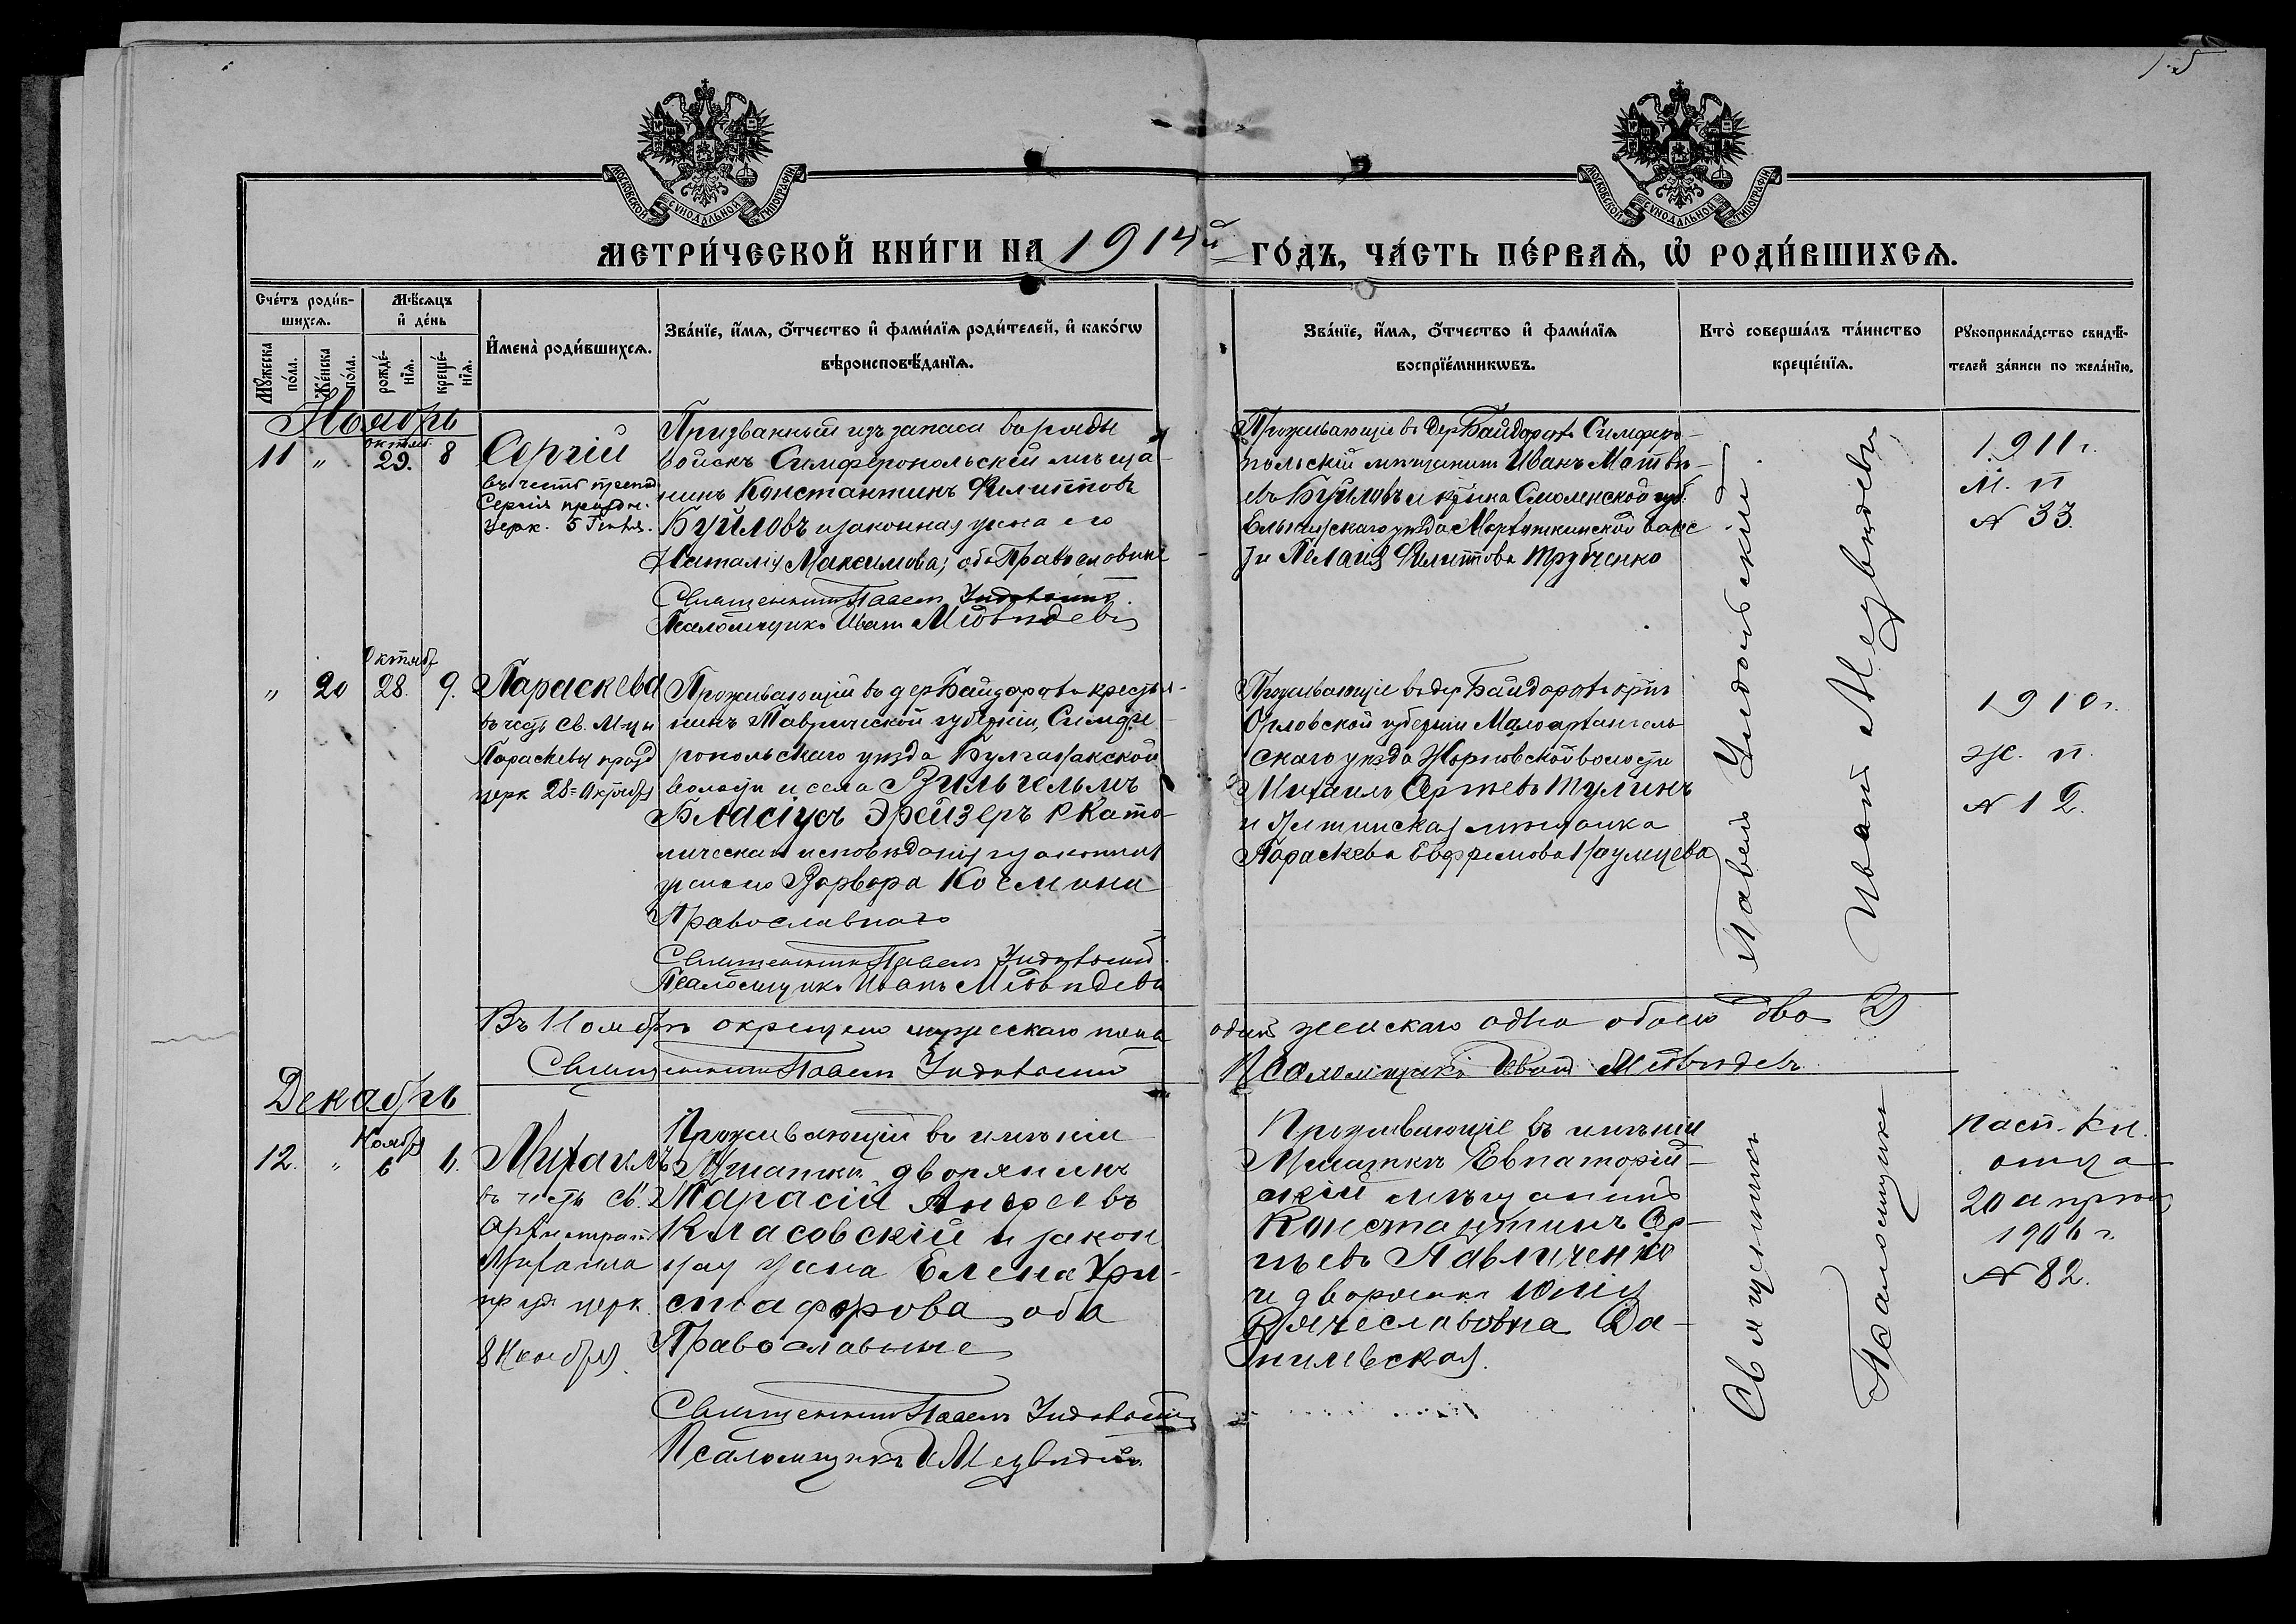 15
МОСКОВСКОЙ СѴНОДАЛЬНОЙ ТИПОГРАФІИ
МОСКОВСКОЙ СѴНОДАЛЬНОЙ ТИПОГРАФІИ
МЕТРИ́ЧЕСКОЙ КНИ́ГИ НА 1914й ГО́ДЪ, ЧА́СТЬ ПЕ́РВАѦ, Ѡ҆ РОДИ́ВШИХСѦ.
Сче́тъ роди́в-
шихсѧ.
Мꙋ́жеска
по́ла.
Же́нска
по́ла.
Мѣ́сѧцъ
и҆ де́нь
рожде́-
нїѧ.
креще́-
нїѧ.
И҆мена̀ роди́вшихсѧ.
Зва́нїе, и҆́мѧ, ѻ҆́тчество и҆ фами́лїѧ роди́телей, и҆ како́гѡ
вѣроисповѣ́данїѧ.
Зва́нїе, и҆́мѧ, ѻ҆́тчество и҆ фами́лїѧ
воспрїе́мникѡвъ.
Кто̀ соверша́лъ та́инство
креще́нїѧ.
Рꙋкоприкла́дство свидѣ́-
телей за́писи по жела́нїю.
Ноябрь
11 " октяб. 29. 8
Сергій
въ честь преп.
Сергія праздн.
церк. 5 Іюля.
Призванный изъ запаса въ ряды
войскъ Симферопольскій мѣща-
нинъ Константинъ Филипповъ
Буйловъ и законная жена его
Наталія Максимова, оба Православные
Священникъ Павелъ
Псаломщикъ Иванъ Медвѣдевъ
Проживающіе въ дер Байдарахъ Симферо-
польскій мѣщанинъ Иванъ Матвѣ-
евъ Буйловъ и кр-нка Смоленской губ.
уѣзда волос
ти Пелагія Филиппова Трубченко
1911 г.
М. п
№ 33.
" 20 Октябр 28. 9.
Параскева
въ честь св. М-цы
Параскевы празд
церк 28 Октября
Проживающій въ дер Байдарахъ крестья-
нинъ Таврической губерніи, Симфе-
ропольскаго уѣзда Булганакской
волости и села Вильгельмъ
Бласіусъ Эрейзеръ Р Като-
лическаго исповѣданія и законная
жена его Варвара Космина
Православнаго
Священникъ Павелъ
Псаломщикъ Иванъ Медвѣдевъ
Проживающіе въ дер Байдарахъ кр-нъ
Орловской губерніи Малоархангель-
скаго уѣзда волости
Михаилъ Сергѣевъ Тулинъ
и Ялтинская мѣщанка
Параскева Евфремова Наумцева
1910 г.
Ж. п.
№ 12.
Въ Ноябрѣ окрещено мужескаго пола
одинъ женскаго одна обоего два 2
Священникъ Павелъ
Псаломщикъ Иванъ Медвѣдевъ
Декабрь
12. " Ноябр 6 6.
Михаилъ
въ честь св.
Архистрат
Михаила
празд церк.
8 Ноября.
Проживающій въ имѣніи
Мшатки дворянинъ
Тарасій Андреевъ
Класовскій и закон
ная жена Елена Хри-
стафорова оба
Православные
Священникъ Павелъ
Псаломщикъ И Медвѣдевъ
Проживающіе въ имѣніи
Мшатки Евпаторій-
скій мѣщанинъ
Константинъ Сер-
гѣевъ Павличенко
и дворянка Юлія
Вячеславовна Да-
нилевская.
Священникъ Павелъ
Псаломщикъ Иванъ Медвѣдевъ
Пасп. кн.
отца
20 апрѣля
1906 г.
№ 82.